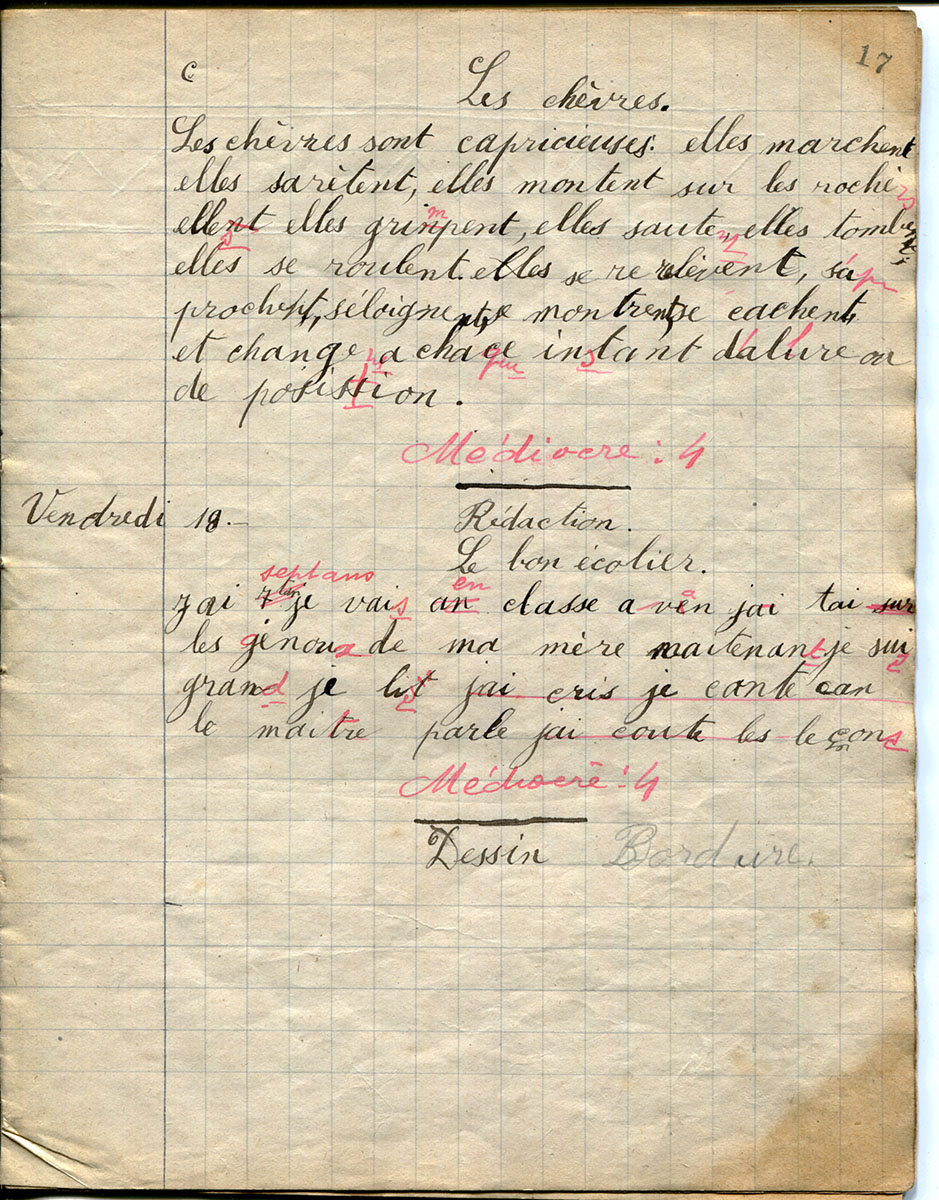 17
C
Les chèvres.
Les chèvres sont capricieuses: elles marchent
elles sarêtent, elles montent sur les rochers
ellent elles grimpent, elles saute, elles tombent
elles se roulent. elles se re relèvent, s'ap
prochent, séloignent, se montrent, se cachent,
et change a chaque instant d'alure ou
de position.
Médiocre : 4
Vendredi 18.
Rédaction.
Le bon écolier.
sept ans
en
j'ai 7 je vais an classe a ven jai tai sur
les génoux de ma mère maitenant je suis
grand je lis jai cris je conte can
le maitre parle jai coute les leçons
Médiocre : 4
Dessin Bordure.